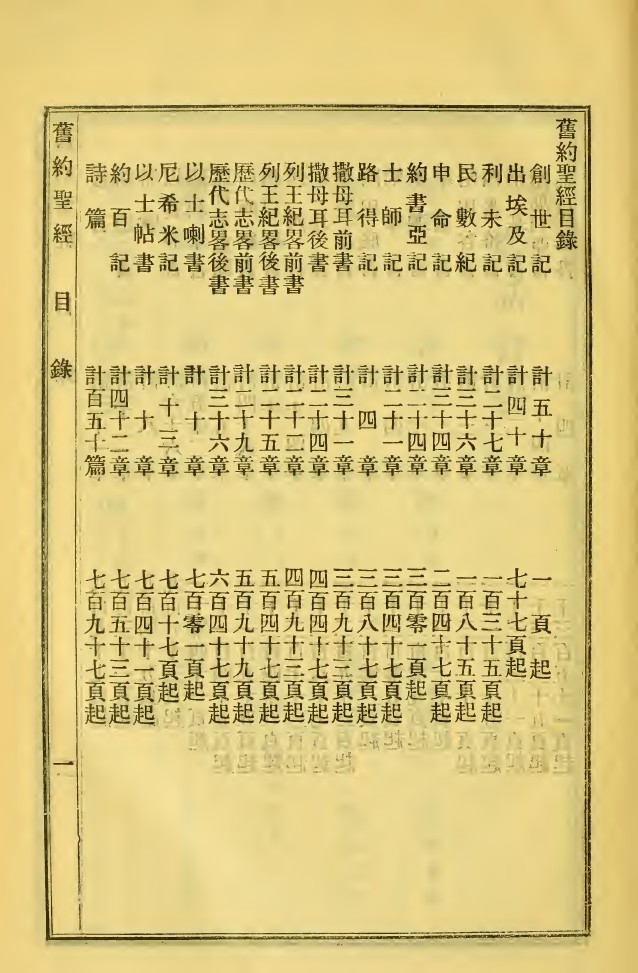 舊約聖經目錄
創世記 計五十章 一頁起
出埃及記 計四十章 七十七頁起
利未記 計二十七章 一百三十五頁起
民數紀 計三十六章 一百八十五頁起
申命記 計三十四章 二百四十七頁起
約書亞記 計二十四章 三百零一頁起
士師記 計二十一章 三百四十七頁起
路得記 計四章 三百八十七頁起
撒母耳前書 計三十一章 三百九十三頁起
撒母耳後書 計二十四章 四百四十七頁起
列王紀畧前書 計二十二章 四百九十三頁起
列王紀畧後書 計二十五章 五百四十七頁起
歷代志畧前書 計二十九章 五百九十九頁起
歷代志畧後書 計三十六章 六百四十七頁起
以士喇書 計十章 七百零一頁起
尼希米記 計十三章 七百十七頁起
以士帖書 計十章 七百四十一頁起
約百記 計四十二章 七百五十三頁起
詩篇 計百五十篇 七百九十七頁起
舊約聖經 目錄 一